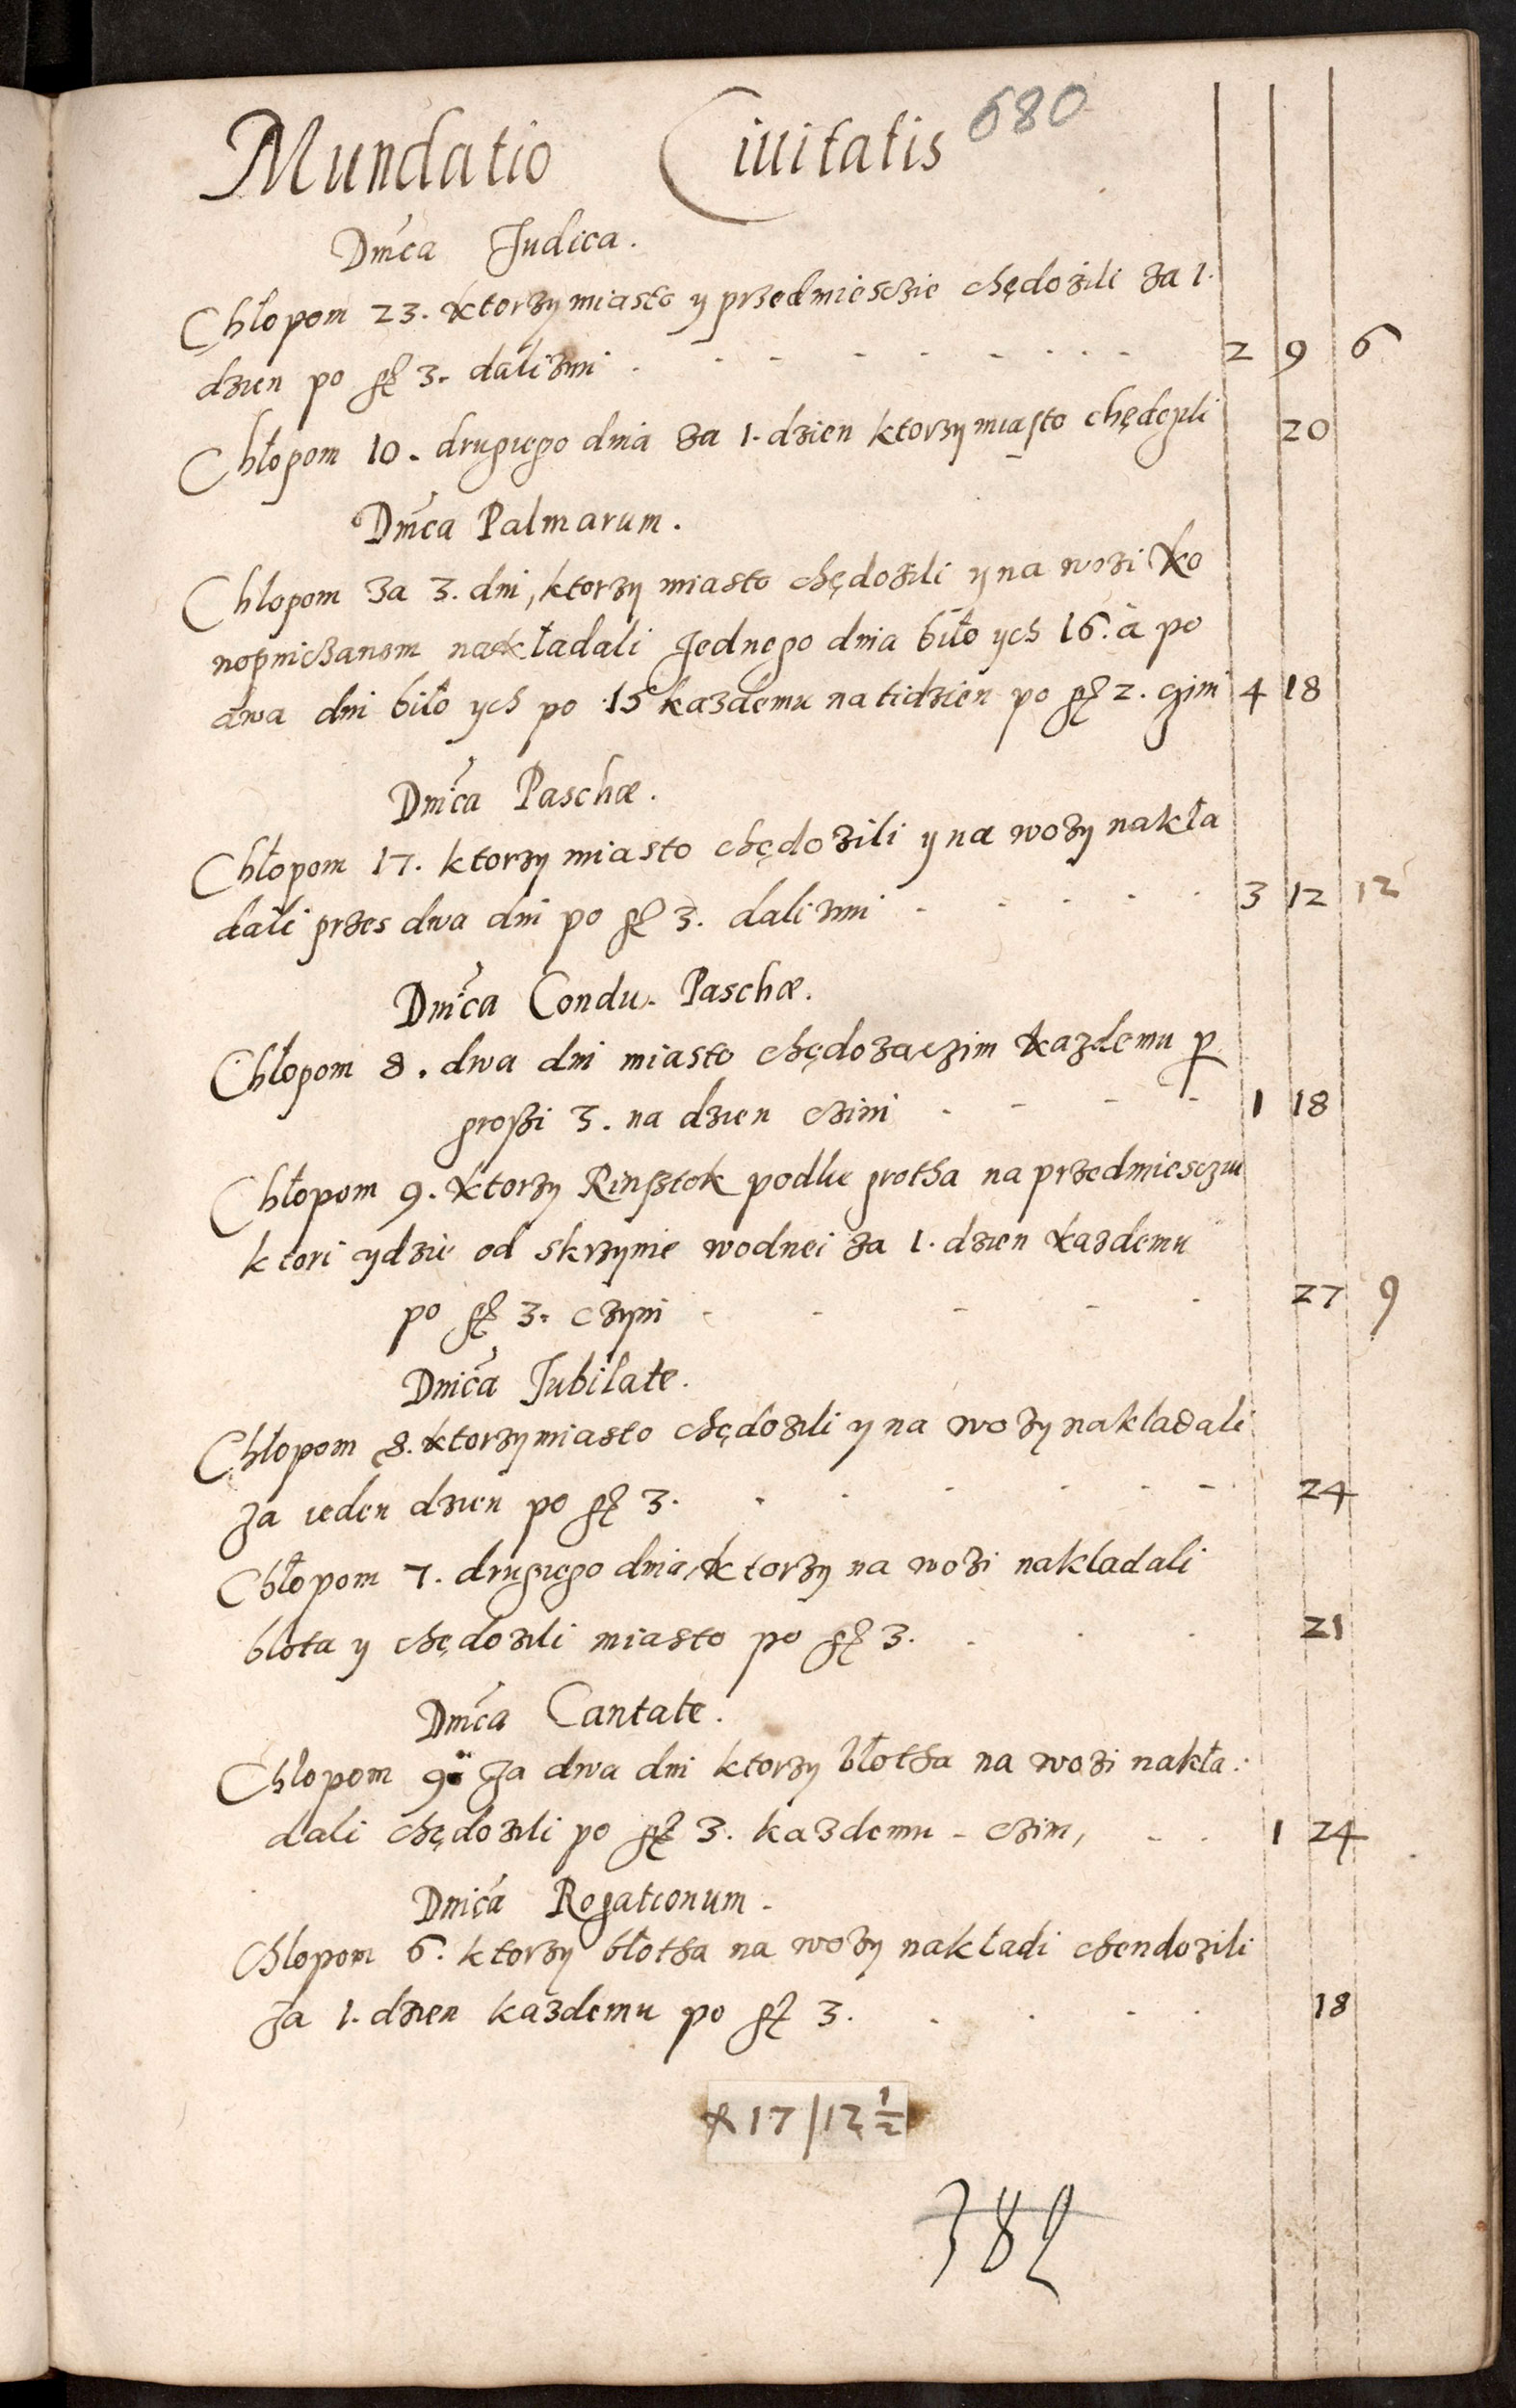 680
Mundatio Ciuitatis
Dnica Judica.
Chłopom 23. ktorzy miasto y przedmiesczie chędozili za 1.
dzien po gr 3. dalizmi . - - - - - . . . - 2 9 6
Chłopom 10. drugiego dnia za 1. dzien ktorzy miasto chędozili 20
Dnica Palmarum.
Chlopom za 3. dni, ktorzy miasto chędozili y na wozi ko
nopniczanom nakładali Jednego dnia biło ych 16. à po
dwa dni biło ych po 15 kazdemu na tidzien po gr 2. czini 4 18
Dnica Paschæ.
Chłopom 17. ktorzy miasto chędozili y na wozy nakła
dali przes dwa dni po gr 3. dalizmi - - . . . 3 12 12
Dnica Condu. Paschæ.
Chłopom 8. dwa dni miasto chędozaczim kazdemu p
groszi 3. na dzien czini - - - - 1 18
Chłopom 9. ktorzy Rinsztok podle grotha na przedmiescziu
ktori ydzie od skrzynie wodnei za 1. dzien kazdemu
po gr 3. czyni - - - - . 27 9
Dnica Jubilate.
Chłopom 8. ktorzy miasto chędozili y na wozy nakladali
za ieden dzien po gr 3. . . - . - - 24
Chłopom 7. drugiego dnia ktorzy na wozi nakladali
błota y chędozili miasto po gr 3. . . . 21
Dnica Cantate.
Chlopom 9 za dwa dni ktorzy błotha na wozi nakła:
dali chędozili po gr 3. kazdemu - czini, - . 1 24
Dnica Rogationum.
Chlopom 6. ktorzy błotha na wozy nakładi chendozili
za 1. dzien każdemu po gr 3. . . - . 18
17/12 1/2
382